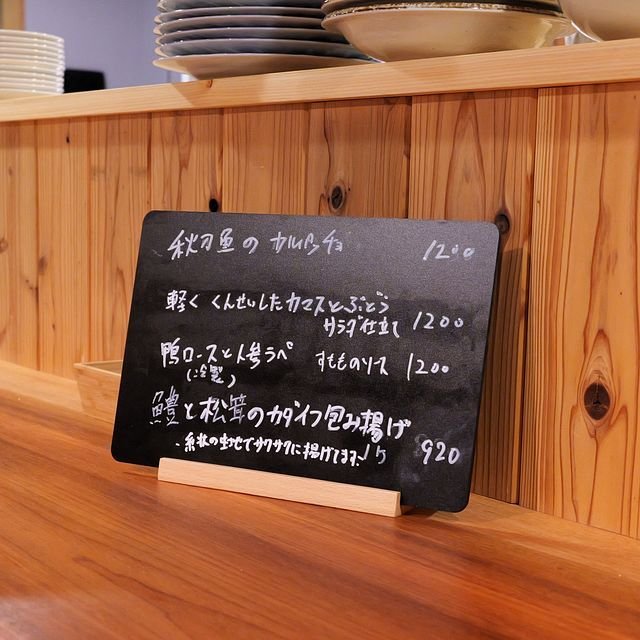 秋刀魚の カルパッチョ 1200
軽く くんせいしたカマスとぶどう
サラダ仕立て 1200
鴨ロースと人参ラペ すもものソース 1200
(冷製)
鱧と松茸のカダイフ包み揚げ
・糸状の生地でサクサクに揚げてます。 1ケ 920